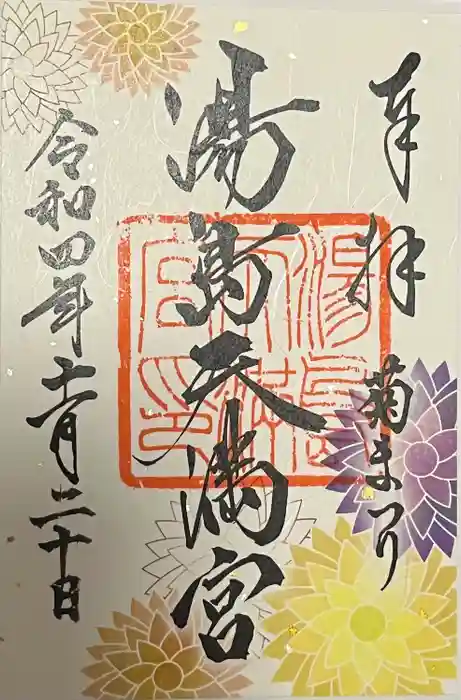 奉拝
菊まつり
湯島天満宮
湯島天満宮印
令和四年十一月二十日